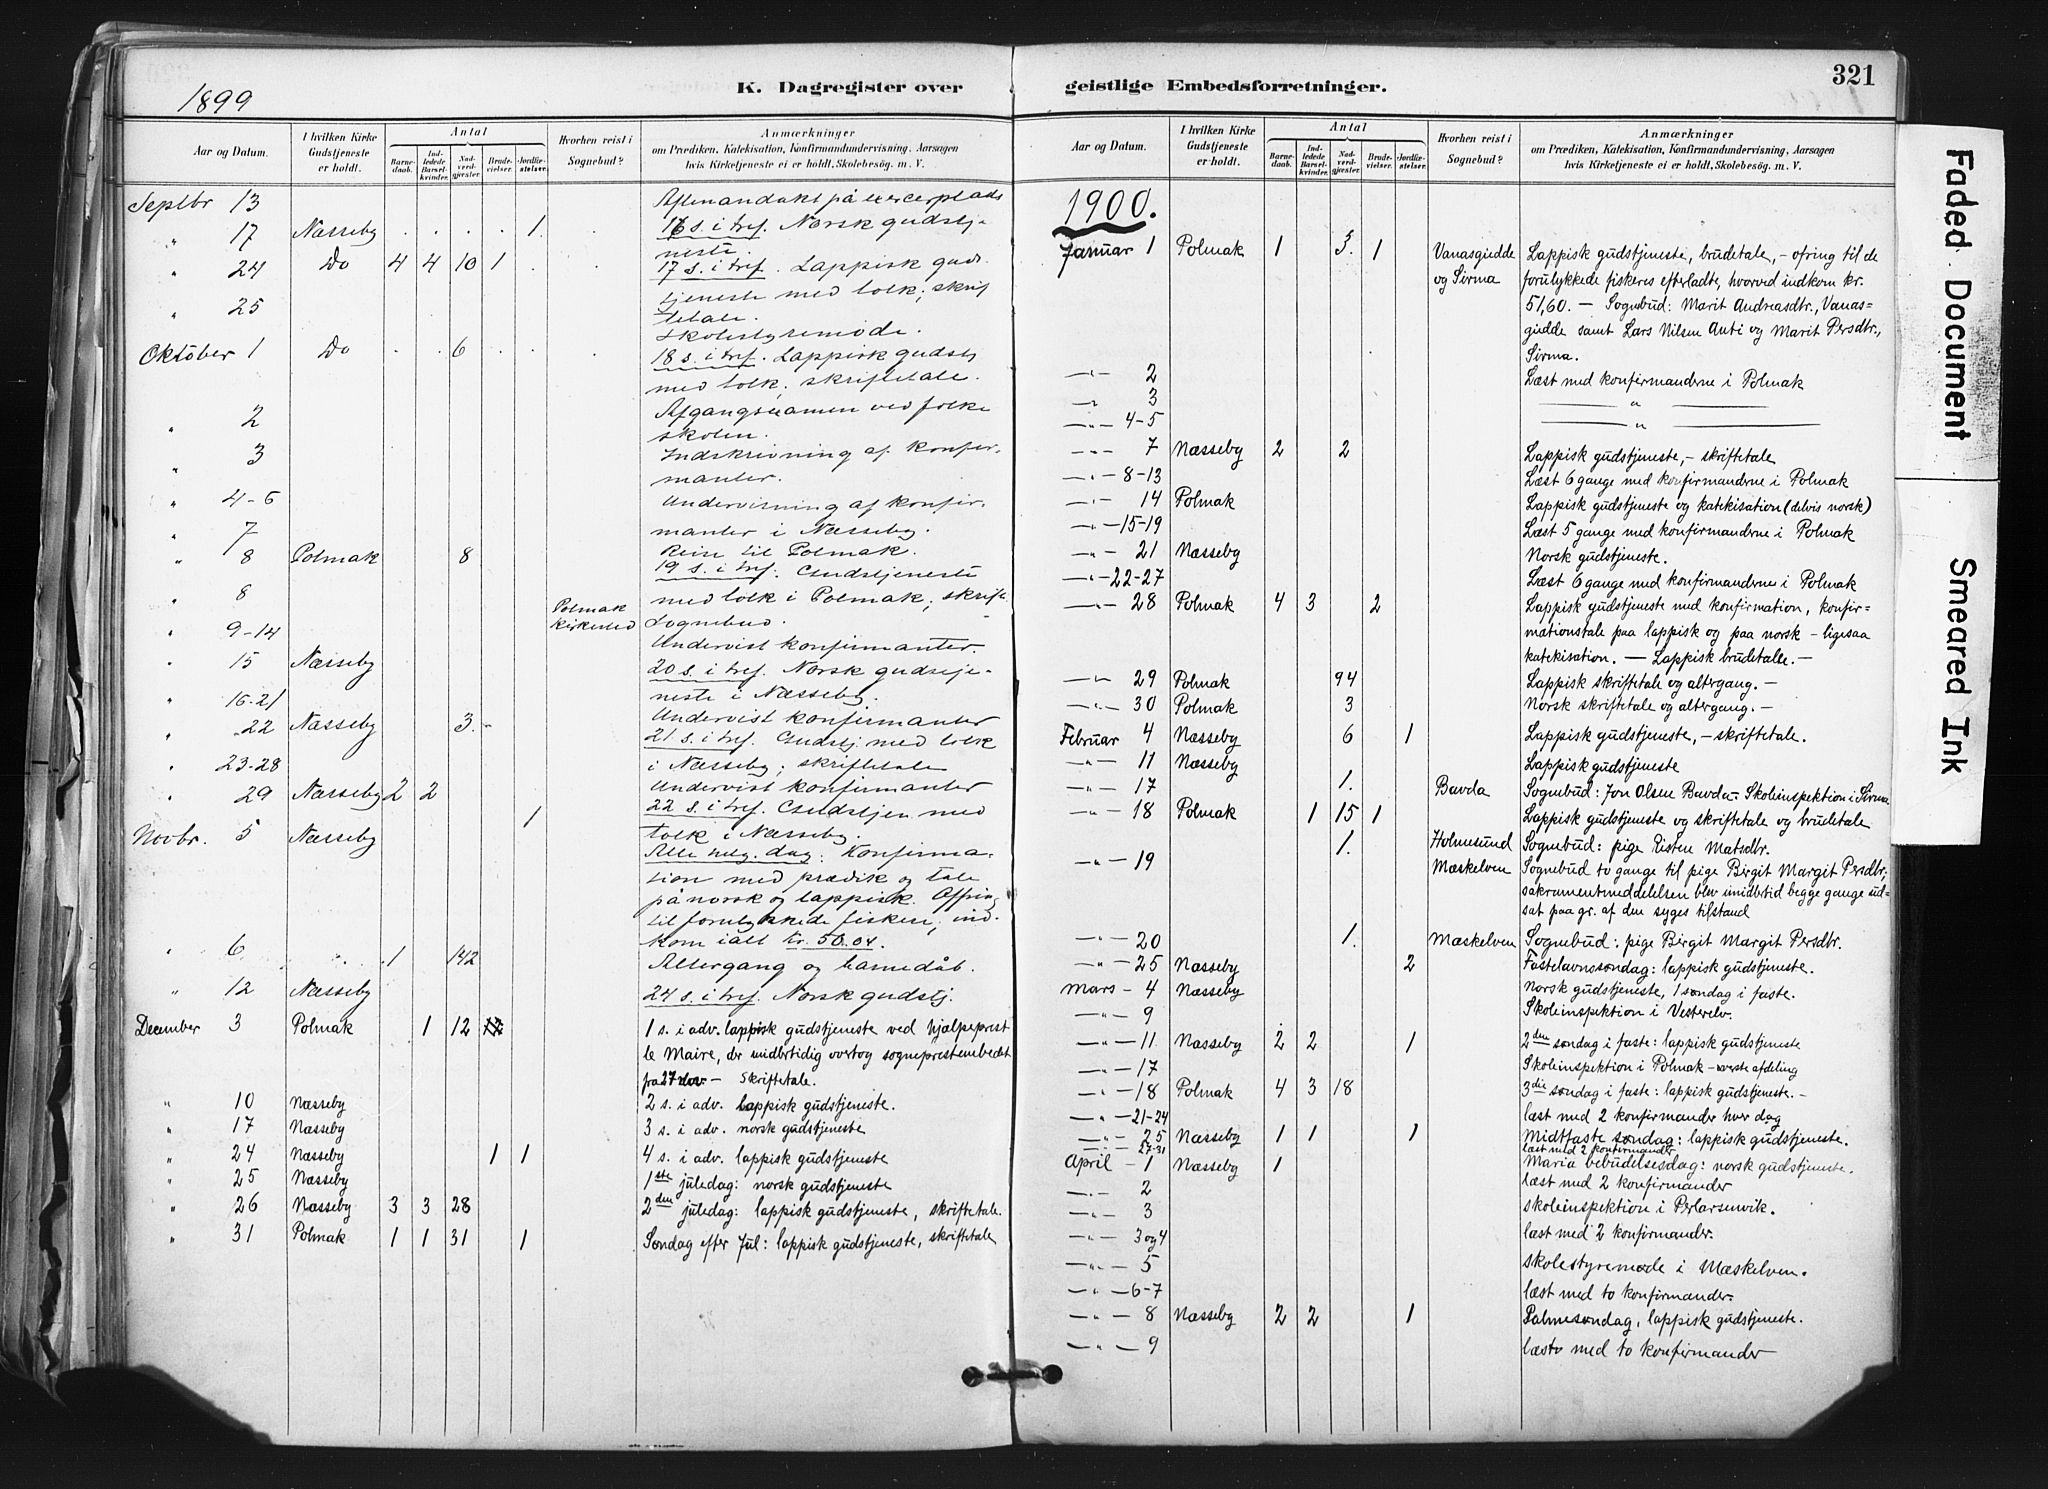 321
K. Dagregister over geistlige Embedsforretninger.
1899
Aar og Datum. I hvilken Kirke Gudstjeneste er holdt. Antal Barnedaab. Indledede Barselkvinder. Nadverdgjester. Brudevielser. Jordfæstelser. Hvorhen reist i Sognebud? Anmærkninger om Prædiken, Katekisation, Konfirmandundervisning, Aarsagen hvis Kirketjeneste ei er holdt, Skolebesøg. m. V.
Septbr 13 Aftenandakt på excerplads
" 17 Næsseby . . . . 1. . 16 s. i tref. Norsk gudstj-
neste.
" 24 Do 4 4 10 1 . . 17 s. i tref. Lappisk guds-
tjeneste med tolk; skrif
tetale.
" 25 Skolestyremøde.
Oktober 1 Do . . 6 . . . 18 s. i tref. Lappisk gudstj
med tolk; skriftetale.
" 2 Afgangsexamen ved folke
skolen.
" 3 Indskrivning af konfir-
manter.
" 4-6 Undervisning af konfir-
manter i Næsseby.
" 7 Reise til Polmak.
" 8 Polmak 8 19 s. i tref. Gudstjeneste
med tolk i Polmak; skrift.
" 8 Polmak kirkested Sognebud.
" 9-14 Undervist konfirmanter.
" 15 Næsseby 20 s. i tref. Norsk gudstje-
neste i Næsseby.
" 16-21 Undervist konfirmanter
" 22 Næsseby 3. - 21 s. i tref. Gudstj. med tolk
i Næsseby; skriftetale
" 23-28 Undervist konfirmanter
" 29 Næsseby 2 2 22 s. i tref. Gudstjen med
tolk i Næsseby.
Novbr. 5 Næsseby 1 Alle helg. dag: Konfirma-
tion med prædik og tale
på norsk og lappisk. Offring
til forulykkede fiskere; ind-
kom ialt kr. 50.04.
" 6 " 1 142 Altergang og barnedåb.
" 12 Næsseby 24 s. i tref. Norsk gudstj.
December 3 Polmak 1 12 1 s. i adv. lappisk gudstjeneste ved hjælpeprest
le Maire, der midlertidig overtog sogneprestembedet
fra 27 nov. - Skriftetale.
" 10 Næsseby 2 s. i adv. lappisk gudstjeneste.
" 17 Næsseby 3 s. i adv. norsk gudstjeneste
" 24 Næsseby 1 1 4 s. i adv. lappisk gudstjeneste
" 25 Næsseby 1ste juledag: norsk gudstjeneste
" 26 Næsseby 3 3 28 2den juledag: lappisk gudstjeneste, skriftetale.
" 31 Polmak 1 1 31 1 Søndag efter Jul: lappisk gudstjeneste, skriftetale
Aar og Datum. I hvilken Kirke Gudstjeneste er holdt. Antal Barnedaab. Indledede Barselkvinder. Nadverdgjester. Brudevielser. Jordfæstelser. Hvorhen reist i Sognebud? Anmærkninger om Prædiken, Katekisation, Konfirmandundervisning, Aarsagen hvis Kirketjeneste ei er holdt, Skolebesøg. m. V.
1900.
Januar 1 Polmak 1 3. 1 Vanasgiedde og Sirma Lappisk gudstjeneste, brudetale, - ofring til de
forulykkede fiskeres efterladte, hvorved indkom kr.
51,60. - Sognebud: Marit Andreasdtr., Vanas-
giedde samt Lars Nilsen Anti og Marit Persdtr.,
Sirma.
—"— 2 Læst med konfirmanderne i Polmak
—"— 3 — " —
—"— 4-5 — " —
—"— 7 Næsseby 2 2 Lappisk gudstjeneste, - skriftetale
—"— 8-13 Læst 6 gange med konfirmanderne i Polmak
—"— 14 Polmak Lappisk gudstjeneste og katekisation (delvis norsk)
—"— 15-19 Læst 5 gange med konfirmanderne i Polmak
—"— 21 Næsseby Norsk gudstjeneste.
—"— 22-27 Læst 6 gange med konfirmanderne i Polmak
—"— 28 Polmak 4 3 2 Lappisk gudstjeneste med konfirmation, konfir=
mationstale paa lappisk og paa norsk - ligesaa
katekisation. — Lappisk brudetale. -
—"— 29 Polmak 94 Lappisk skriftetale og altergang. -
—"— 30 Polmak 3 Norsk skriftetale og altergang. -
Februar 4 Næsseby 6 1 Lappisk gudstjeneste, - skriftetale.
—"— 11 Næsseby Lappisk gudstjeneste
—"— 17 1. Bavda Sognebud: Jon Olsen Bavda - Skoleinspektion i Sirma
—"— 18 Polmak 1 15 1 Lappisk gudstjeneste og skriftetale og brudetale
1. Holmesund Sognebud: pige Listen Matsdtr.
—"— 19 Mæskelven Sognebud to gange til pige Birgit Margit Persdtr;
sakramentmeddelelsen blev imidlertid begge gange ud-
sat paa gr. af den syges tilstand
—"— 20 1. Mæskelven Sognebud: pige Birgit Margit Persdtr.
—"— 25 Næsseby 2 Fastelavnssøndag: lappisk gudstjeneste.
Mars - 4 Næsseby Norsk gudstjeneste, 1 søndag i faste.
—"— 9 Skoleinspektion i Vesterelv.
—"— 11 Næsseby 2 2 1 2den søndag i faste: lappisk gudstjeneste
—"— 17 Skoleinspektion i Polmak - øverste afdeling
—"— 18 Polmak 4 3 18 3die søndag i faste: lappisk gudstjeneste. -
—"— 21-24 læst med 2 konfirmander hver dag
—"— 25 Næsseby 1 1 1 Midtfaste søndag: lappisk gudstjeneste.
—"— 27-31 læst med 2 konfirmander
April - 1 Næsseby 1 Maria bebudelsesdag: norsk gudstjeneste.
—"— 2 læst med 2 konfirmander
—"— 3 skoleinspektion i Perlarsenvik.
—"— 3 og 4 læst med 2 konfirmander.
—"— 5 skolestyremøde i Mæskelven.
—"— 6-7 læst med to konfirmander.
—"— 8 Næsseby 2 2 1 Palmesøndag, lappisk gudstjeneste.
—"— 9 læst med to konfirmander
Faded Document
Smeared Ink